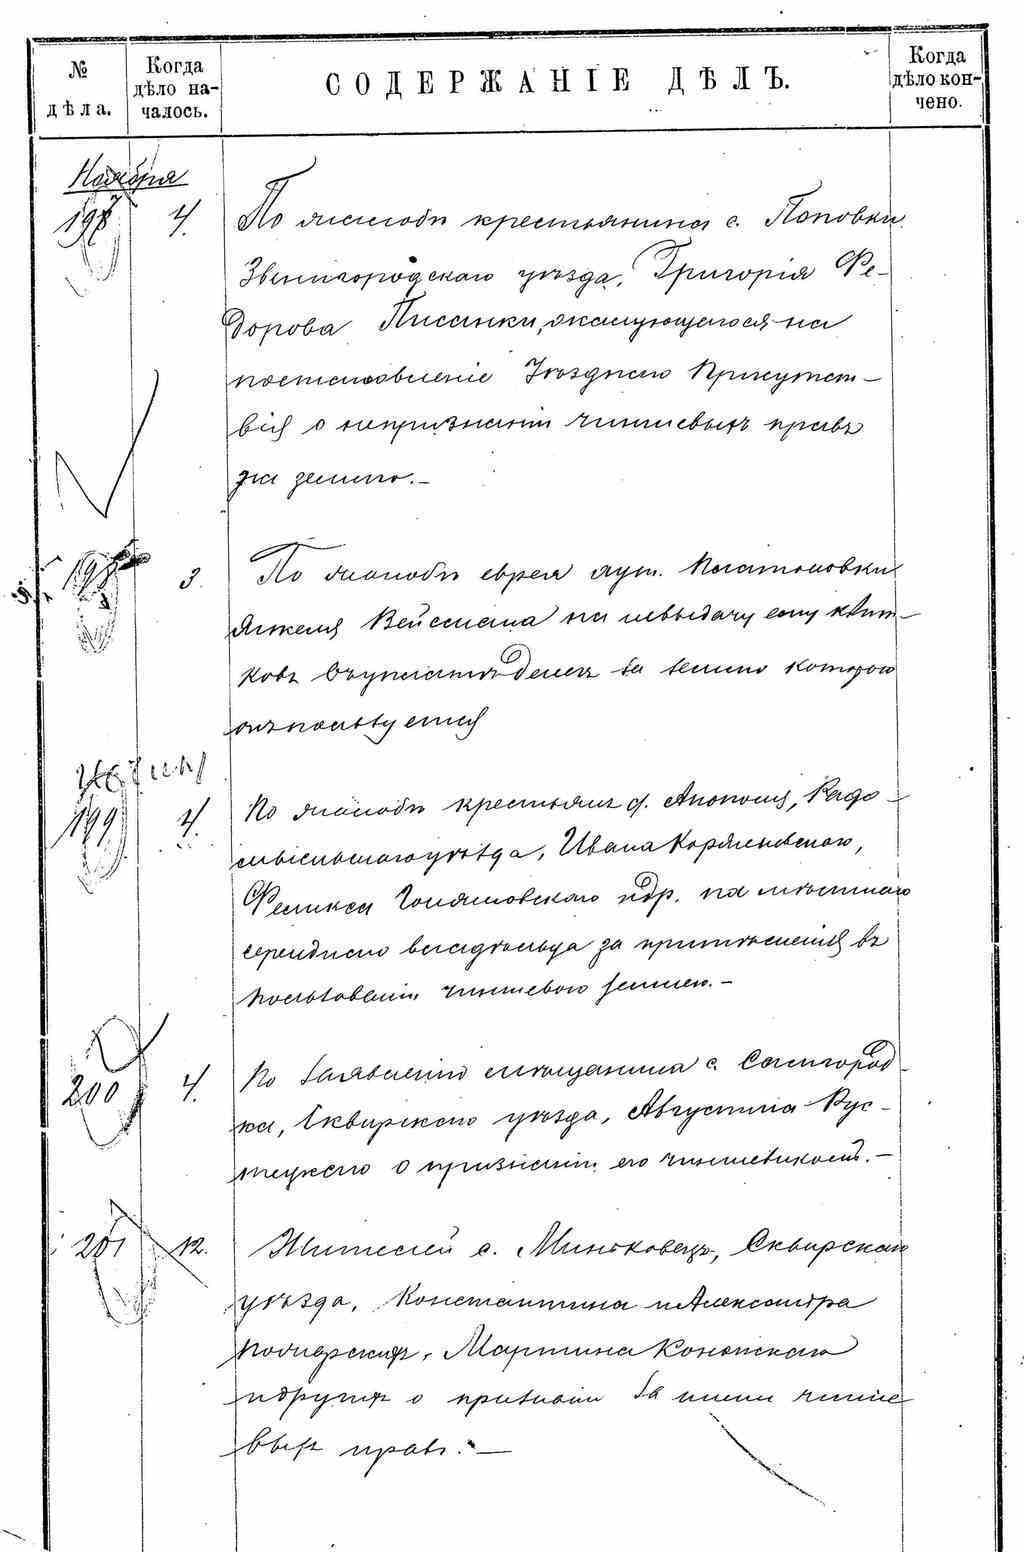 № дѣла.
Когда дѣло началось.
СОДЕРЖАНІЕ ДѢЛЪ.
Когда дѣло кончено.
Ноября
197 4. По жалобѣ крестьянина с. Поповки
Звенигородскаго уѣзда, Григорія Фе-
дорова Писанки, жалующагося на
постановленіе Уѣзднаго Присутст-
вія о непризнаніи чиншевыхъ правъ
на землю.–
198 3. По жалобѣ еврея Игнатовки
Вейсмана на невыдачу ему квит-
ковъ въ уплатѣ денегъ за землю которою
онъ пользуется
199 4. По жалобѣ крестьянъ Радо-
мысльскаго уѣзда, Ивана
Феликса и др. на мѣстнаго
владѣльца за притѣсненія въ
пользованіи чиншевою землею.–
200 4. По заявленію мѣщанина с. Самгород-
ка, Сквирскаго уѣзда, Августина Рус-
тецкаго о признаніи его чиншевикомъ.–
201 12. Жителей с. Миньковецъ, Сквирскаго
уѣзда, Константина и Александра
Мартина
и другихъ о признаніи за ними чинше
выхъ правъ.–